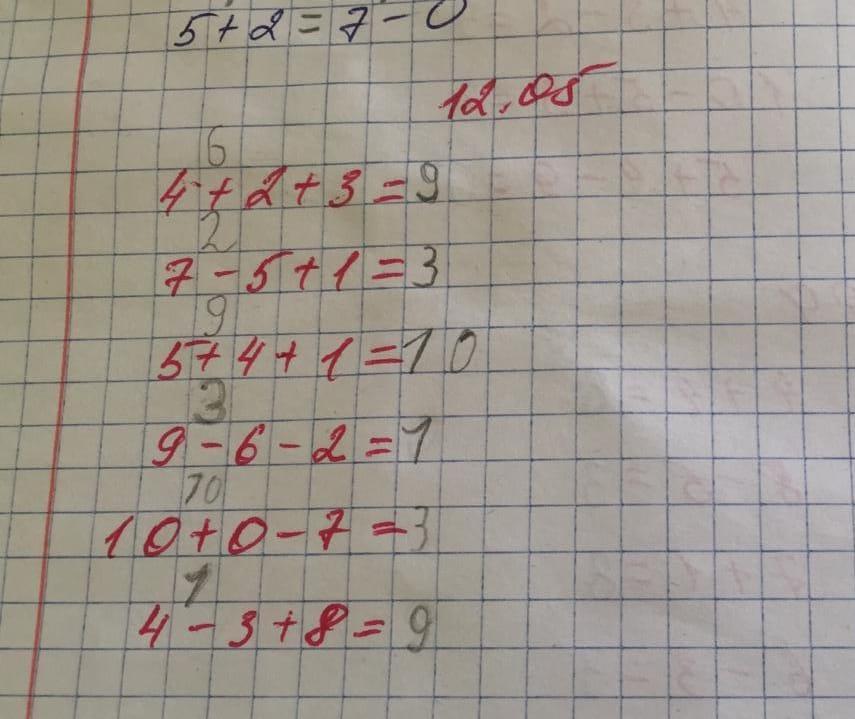 5+2=7-0
12.05
6
4+2+3=9
2
7-5+1=3
9
5+4+1=10
3
9-6-2=1
10
10+0-7=3
1
4-3+8=9